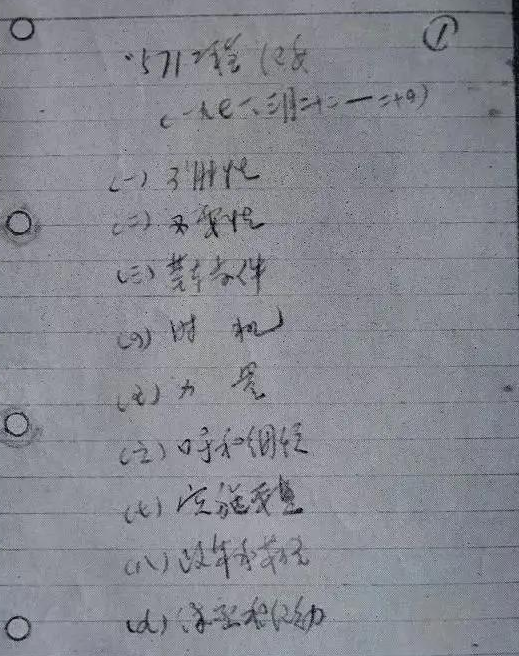 ①
"571工程"纪要
(一九七一、三月二十二——二十四)
(一) 可能性
(二) 必要性
(三) 基本条件
(四) 时机
(五) 力量
(六) 口号和纲领
(七) 实施要点
(八) 政策和策略
(九) 保密和纪律